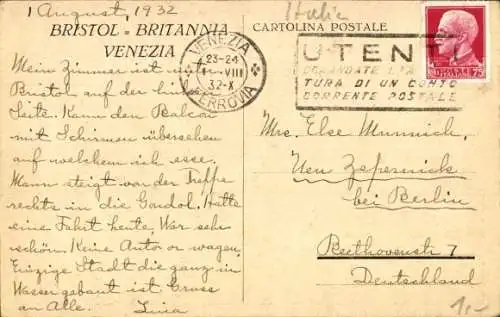 1 August, 1932
Italie
BRISTOL - BRITANNIA
VENEZIA
CARTOLINA POSTALE
VENEZIA
23-24
VIII
32-X
FERROVIA
UTEN
TURA DI UN CONTO
CORRENTE POSTALE
75
Mein Zimmer ist im
Bristol auf der linken
Seite. Kann den Balcon
mit Schirmen übersehen
auf welchem ich esse.
Mann steigt vor der Treppe
rechts in die Gondol. Hatte
eine Fahrt heute. War sehr
schön. Keine Autor or wagen.
Einzige Stadt die ganz in
Wasser gebaut ist. Gruss
an Alle.
Mrs. Else Munnich,
Neu Zepernick
bei Berlin
Beethovenstr 7
Deutschland
1,-